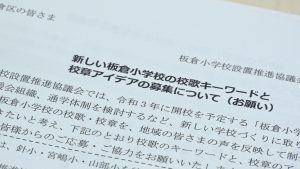 倉区の皆さま
板倉小学校設置推進協議会
新しい板倉小学校の校歌キーワードと
校章アイデアの募集について（お願い）
校設置推進協議会では、令和３年に開校を予定する「板倉小学
会組織、通学体制を検討するなど、新しい学校づくりに取り
板倉小学校の校歌・校章を、地域の皆さまの声を反映して制
きたいと考え、下記のとおり校歌のキーワードと、校章のア
皆様からのご応募・ご協力をお願いいたし
は、針小・宮嶋小・山部小